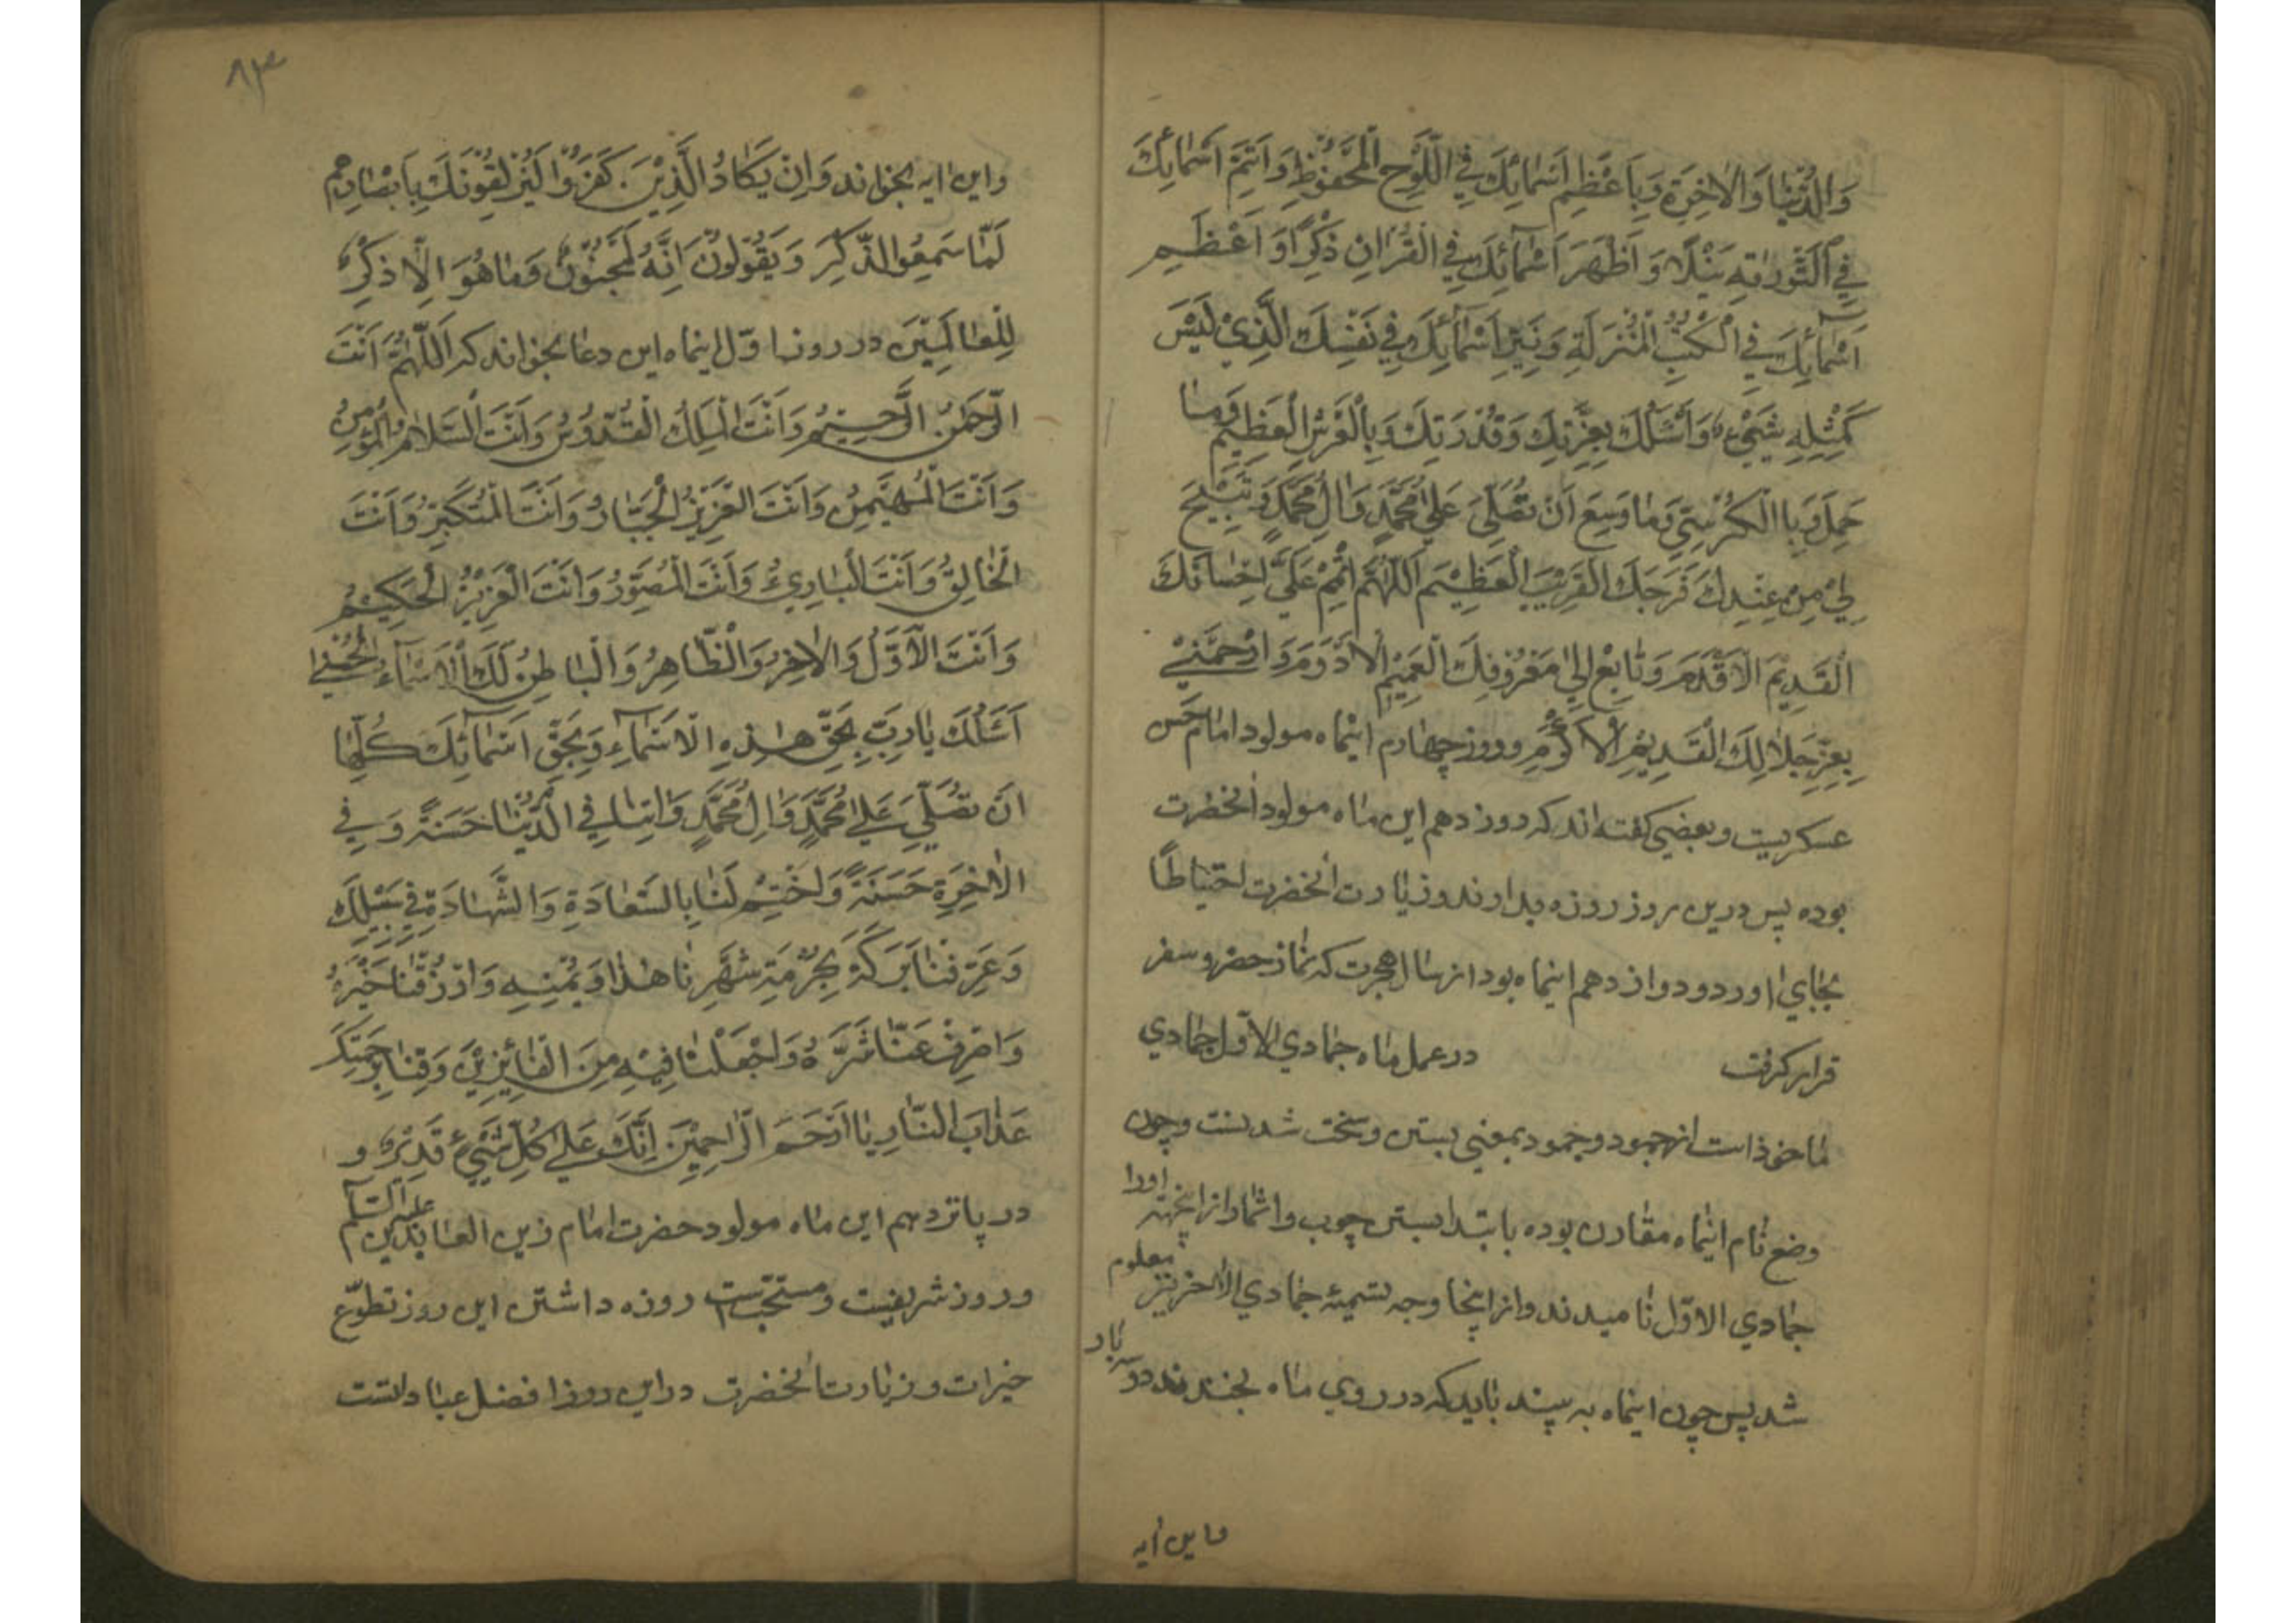 وَالدُّنْيٰا وَالْاٰخِرَةِ وَبِاَعْظَمِ اَسْمٰائِكَ فِي اللَّوْحِ الْمَحْفُوْظِ وَاَتَمِّ اَسْمٰائِكَ
فِي التَّوْرٰاتِهِ نَيْلًا وَاَظْهَرَ اَسْمٰآئِكَ فِي الْقُرْاٰنِ ذِكْرًا وَاَعْظَمِ
اَسْمٰآئِكَ فِي الْكُتُبِ الْمُنْزَلَةِ وَ اَسْمٰآئِكَ فِي نَفْسِكَ الَّذِيْ لَيْسَ
كَمِثْلِهِ شَيْئٌ وَاَسْئَلُكَ بِعِزَّتِكَ وَقُدْرَتِكَ وَبِالْعَرْشِ الْعَظِيْمِ وَمٰا
حَمَلَ وَبِاالْكُرْسِيِّ وَمٰا وَسِعَ اَنْ تُصَلِّيَ عَلٰي مُحَمَّدٍ وَاٰلِ مُحَمَّدٍ وَتُبِيْحَ
لِيْ مِنْ عِنْدِكَ فَرَجَكَ الْقَرِيْبَ الْعَظِيْمَ اَللّٰهُمَّ اَتْمِمْ عَلَيَّ اِحْسٰانَكَ
الْقَدِيْمَ الْاَقْدَمَ وَتٰابِعْ اِلَيَّ مَعْرُوْفَكَ الْعَمِيْمَ الْاَدْوَمَ وَارْحَمْنِيْ
بِعِزِّ جَلٰالِكَ الْقَدِيْمِ الْاَكْرَمِ وروز چهارم اینماه مولود امام حسن
عسکریست وبعضی کفته‌اند که روز دهم این ماه مولود انحضرت
بوده پس درین روز روزه بدارند وزیارت انحضرت احتیاطًا
بجای اورد ودوازدهم اینماه بود از سال هجرت که نماز حضر وسفر
قرار کرفت در عمل ماه جمادی الاوّل جمادی
ماخوذاست از جمود وجمود بمعنی بستن وسخت شدنست وچون
وضع نام اینماه مقارن بوده بابتدا بستن چوب واثمار ازاینجهة اورا
جمادی الاوّل نامیدند وازاینجا وجه تسمیۀ جمادی الاٰخر نیز معلوم
شد پس چون اینماه به بیند باید که در روی ماه بخندند دوسه بار
واین ایه
۸۳
واین ایه بخوانند وَاِنْ يَكٰادُ الَّذِيْنَ كَفَرُوْا لَيُزْلِقُوْنَكَ بِاَبْصٰارِهِم
لَمّٰا سَمِعُوا الذِّكْرَ وَيَقُوْلُوْنَ اِنَّهُ لَمَجْنُوْنٌ وَمٰا هُوَ اِلّٰا ذِكْرٌ
لِلْعٰالَمِيْنَ در روز اوّل اینماه این دعا بخوانند که اَللّٰهُمَّ اَنْتَ
الرَّحْمٰنُ الرَّحِيْمُ وَاَنْتَ الْمَلِكُ الْقُدُّوْسُ وَاَنْتَ السَّلٰامُ الْمُؤْمِنُ
وَاَنْتَ الْمُهَيْمِنُ وَاَنْتَ الْعَزِيْزُ الْجَبّٰارُ وَاَنْتَ الْمُتَكَبِّرُ وَاَنْتَ
الْخٰالِقُ وَاَنْتَ الْبٰارِيءُ وَاَنْتَ الْمُصَوِّرُ وَاَنْتَ الْعَزِيْزُ الْحَكِيْمُ
وَاَنْتَ الْاَوَّلُ وَالْاٰخِرُ وَالْظّٰاهِرُ وَالْبٰاطِنُ لَكَ الْاَسْمٰآءُ الْحُسْنٰی
اَسْئَلُكَ يٰا رَبِّ بِحَقِّ هٰذِهِ الْاَسْمٰآءِ وَبِحَقِّ اَسْمٰآئِكَ كُلِّهٰا
اَنْ تُصَلِّيَ عَلٰي مُحَمَّدٍ وَاٰلِ مُحَمَّدٍ وَاٰتِنٰا فِي الدُّنْيٰا حَسَنَةً وَفِي
الْاٰخِرَةِ حَسَنَةً وَاخْتِمْ لَنٰا بِالسَّعٰادَةِ وَالشَّهٰادَةِ فِي سَبِيْلِكَ
وَعَرِّفْنٰا بَرَكَةَ بِحُرْمَةِ شَهْرِنٰا هٰذٰا وَيُمْنِهِ وَارْزُقْنٰا خَيْرَهُ
وَاصْرِفْ عَنّٰا شَرَّهُ وَاجْعَلْنٰا فِيْهِ مِنَ الْفٰائِزِيْنَ وَقِنٰا بِرَحْمَتِكَ
عَذٰابَ النّٰارِ يٰا اَرْحَمَ الرّٰاحِمِيْنَ اِنَّكَ عَلٰي كُلِّ شَيْئٍ قَدِيْرٌ و
در پانزدهم این ماه مولود حضرت امام زین العابدین علیه السلام
وروز شریفست ومستحبّست روزه داشتن این روز تطوّع
خیرات وزیارت انحضرت دراین روز افضل عباداتست